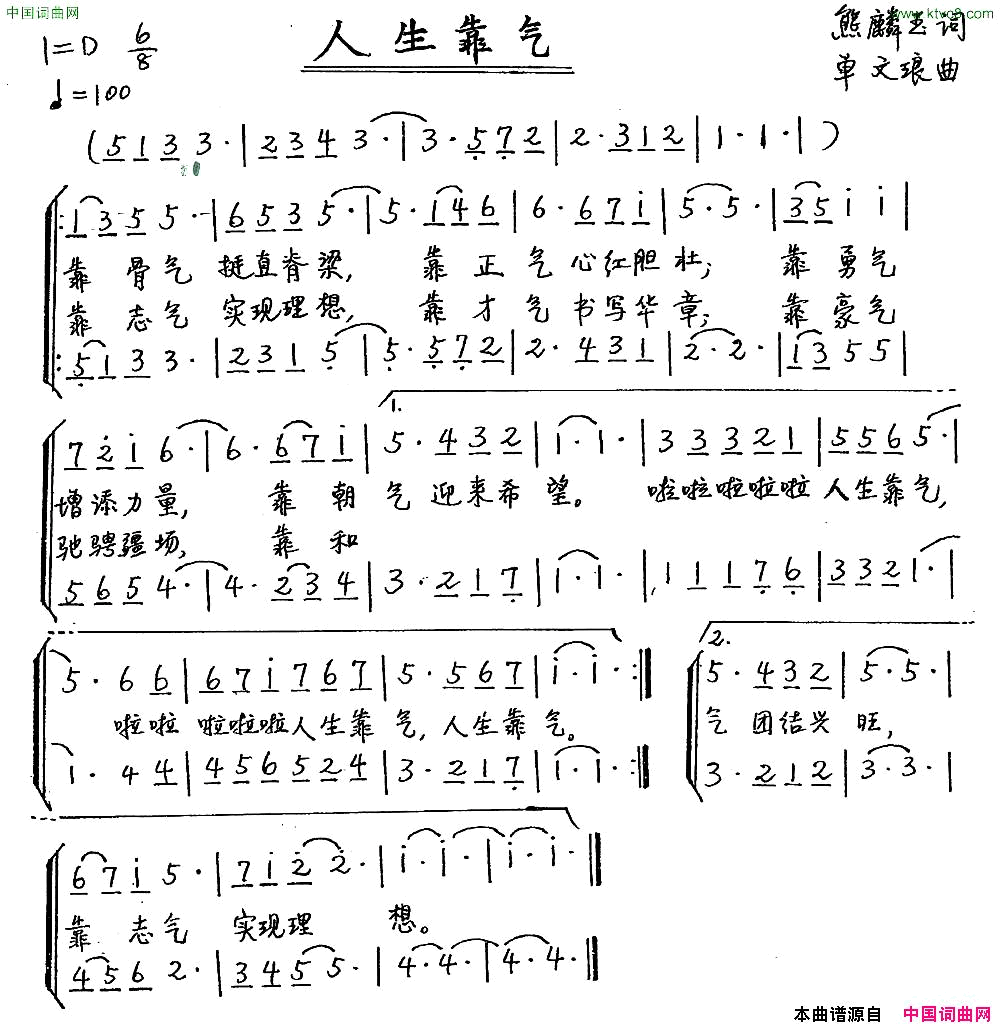 中国词曲网
www.ktvc8.com
人生靠气
熊麟玉词
单文琅曲
1=D 6/8
♩=100
(5 1 3 3·|2 3 4 3·|3· 5 7 2|2· 3 1 2|1· 1·|)
1 3 5 5·|6 5 3 5·|5· 1 4 6|6· 6 7 i|5· 5·|3 5 i i|
靠骨气 挺直脊梁, 靠正气心红胆壮; 靠勇气
靠志气 实现理想, 靠才气书写华章; 靠豪气
5 1 3 3·|2 3 1 5·|5· 5 7 2|2· 4 3 1|2· 2·|1 3 5 5|
1.
7 2 i 6·|6· 6 7 i|5· 4 3 2|1· 1·|3 3 3 2 1|5 5 6 5·|
增添力量, 靠朝气迎来希望。 啦啦啦啦啦人生靠气,
驰骋疆场, 靠和
5 6 5 4·|4· 2 3 4|3· 2 1 7|1· 1·|1 1 1 7 6|3 3 2 1·|
2.
5· 6 6|6 7 i 7 6 7|5· 5 6 7|i· i·:|| 5· 4 3 2|5· 5·|
啦啦 啦啦啦人生靠气, 人生靠气。 气团结兴旺,
1· 4 4|4 5 6 5 2 4|3· 2 1 7|1· 1·:|| 3· 2 1 2|3· 3·|
6 7 i 5·|7 i 2 2·|i· i·|i· i·||
靠志气 实现理 想。
4 5 6 2·|3 4 5 5·|4· 4·|4· 4·||
本曲谱源自 中国词曲网